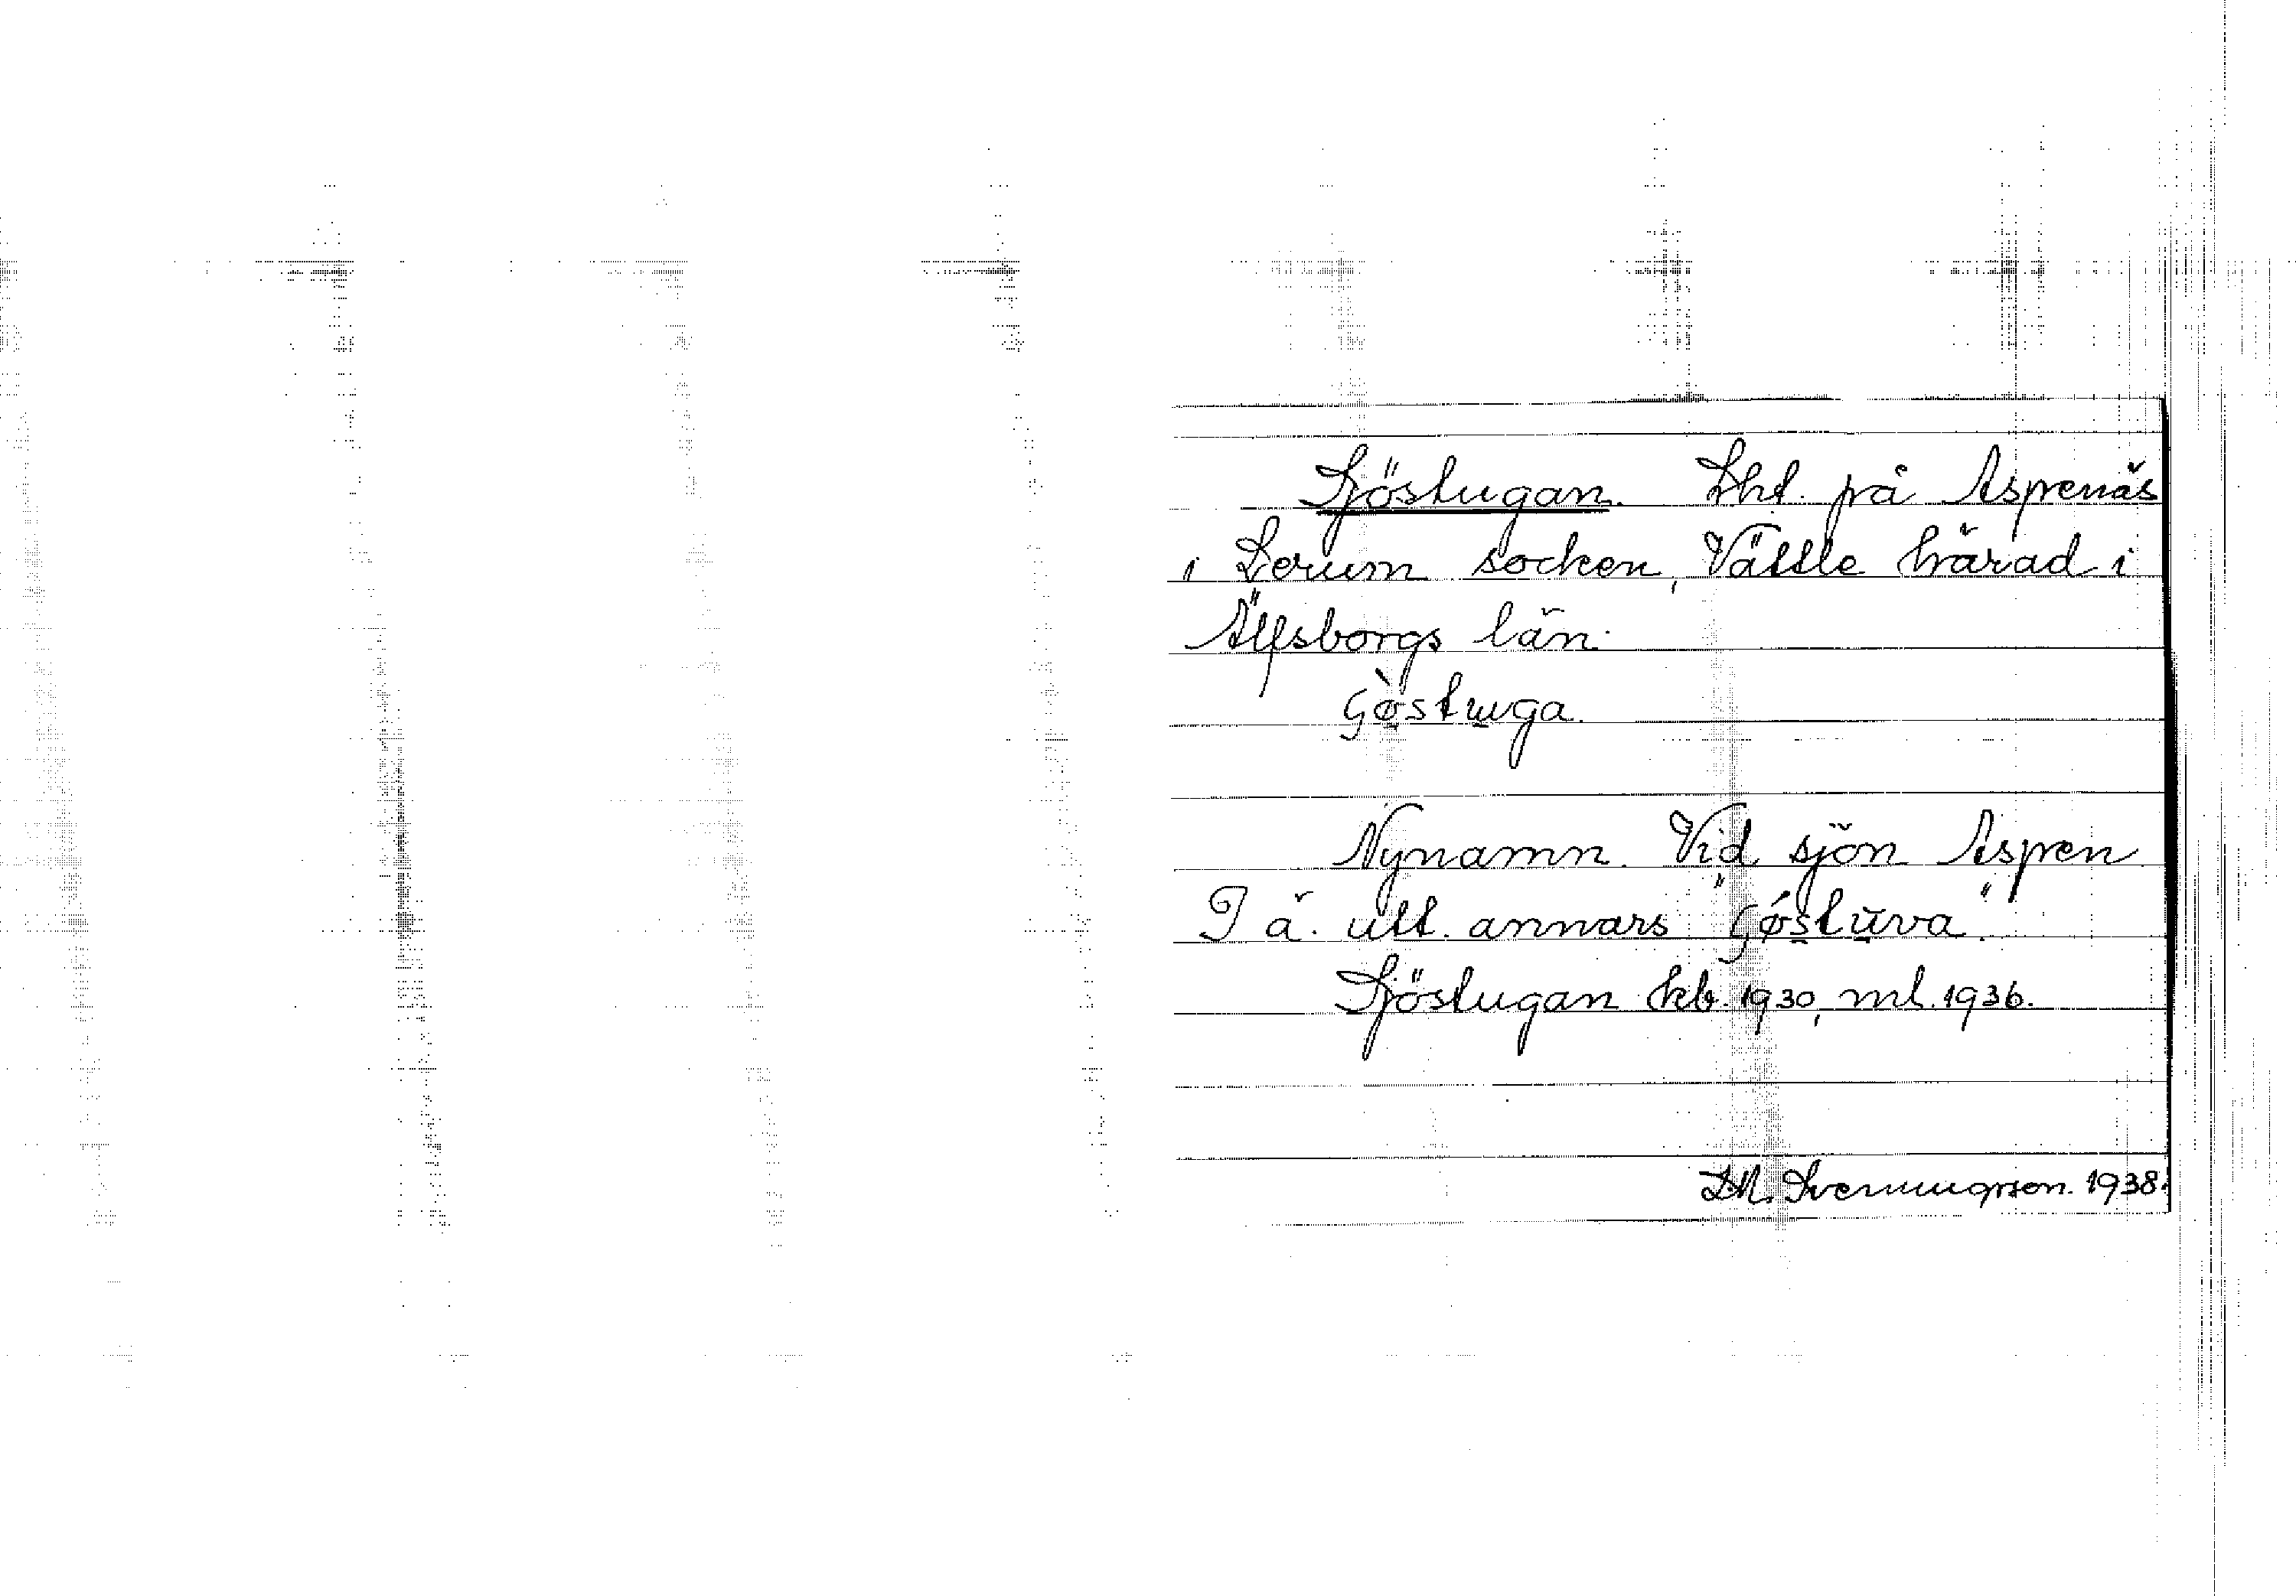 Sjöstugan. Lht. på Aspenäs
i Lerum socken, Vättle härad i
Älfsborgs län.
Gøstuga.
Nynamn. Vid sjön Aspen.
I ä. utt. annars "Gøstuva".
Sjöstugan kb. 1930, ml. 1936.
1938.